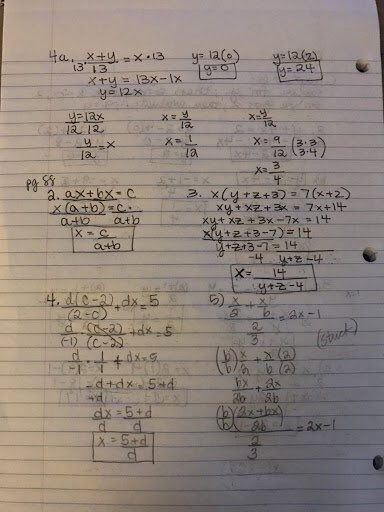 4a. (x+y)/13 = x · 13
13·
x+y = 13x-1x
y=12x
y=12(0)
y=0
y=12(2)
y=24
y=12x
12 12
y/12 = x
x=y/12
x=1/12
x=y/12
x=9/12 (3·3/3·4)
x=3/4
pg 88
2. ax+bx=c
x(a+b)=c
a+b a+b
x=c/(a+b)
3. x(y+z+3)=7(x+2)
xy+xz+3x=7x+14
xy+xz+3x-7x=14
x(y+z+3-7)=14
y+z+3-7=14
-4 y+z-4
x=14/(y+z-4)
4. d(c-2)/(2-c) + dx=5
d/(-1) (c-2)/(c-2) + dx=5
d/-1 · 1/1 + dx=5
-d+dx=5+d
+d
dx=5+d
d d
x=5+d/d
5) x/2 + x/b
2/3
=2x-1
(stuck)
(b)/(b) x/2 + x/b (2)/(2)
bx/2b + 2x/2b
(b)(2x+bx)/2b
2/3
=2x-1